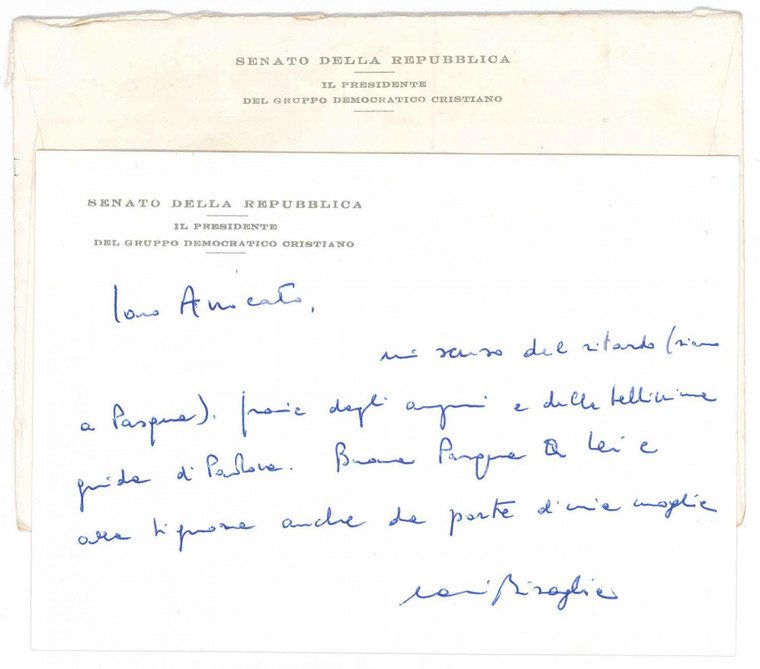 SENATO DELLA REPUBBLICA
IL PRESIDENTE
DEL GRUPPO DEMOCRATICO CRISTIANO
SENATO DELLA REPUBBLICA
IL PRESIDENTE
DEL GRUPPO DEMOCRATICO CRISTIANO
Avvocato,
mi scuso del ritardo (siamo
a Pasqua). Grazie degli auguri e della bellissima
guida di Padova. Buona Pasqua a Lei e
alla Signora anche da parte di mia moglie
Bisaglia